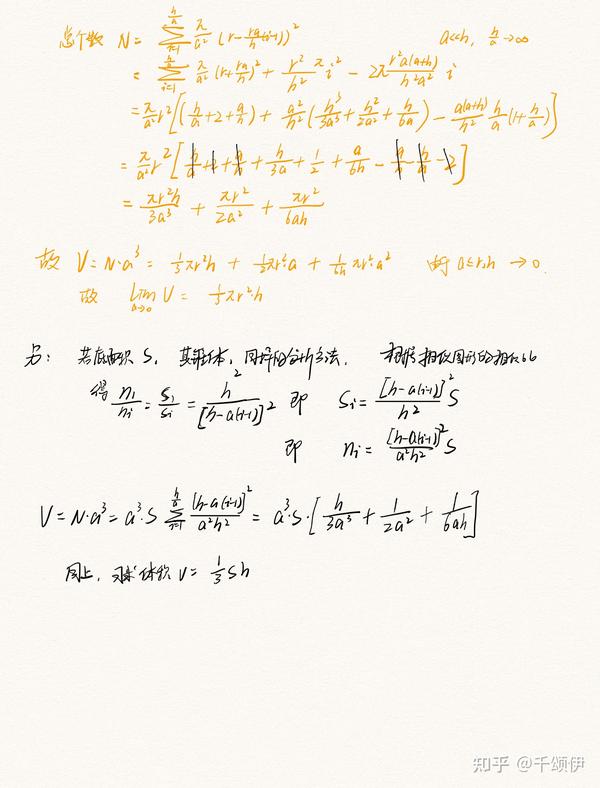 总个数 N = \sum_{i=1}^{\frac{h}{a}} \frac{π}{a²} (r - \frac{ra}{h}(i-1))² a<<h, \frac{h}{a} → ∞
= \sum_{i=1}^{\frac{h}{a}} \frac{π}{a²} (r + \frac{ra}{h})² + \frac{r²}{h²} π i² - 2π \frac{r²a(a+h)}{h²a²} i
= \frac{π}{a²} r² [(\frac{h}{a} + 2 + \frac{a}{h}) + \frac{a²}{h²} (\frac{h³}{3a³} + \frac{h²}{2a²} + \frac{h}{6a}) - \frac{a(a+h)}{h²} \frac{h}{a} (1 + \frac{h}{a})]
= \frac{π}{a²} r² [\frac{h}{a} + 2 + \frac{a}{h} + \frac{h}{3a} + \frac{1}{2} + \frac{a}{6h} - \frac{a}{h} - \frac{h}{a} - 2]
= \frac{πr²h}{3a³} + \frac{πr²}{2a²} + \frac{πr²}{6ah}
故 V = N·a³ = \frac{1}{3}πr²h + \frac{1}{2}πr²·a + \frac{1}{6h}πr²·a² a≤r,h → 0.
故 \lim_{a→0} V = \frac{1}{3}πr²h
另: 若底面积 S, 其锥体, 同样的分析方法. 根据相似图形的相似比
得 \frac{n_1}{n_i} = \frac{S_1}{S_i} = \frac{h²}{[h-a(i-1)]²} 即 S_i = \frac{[h-a(i-1)]²}{h²} S
即 n_i = \frac{[h-a(i-1)]²}{a²h²} S
V = N·a³ = a³·S \sum_{i=1}^{\frac{h}{a}} \frac{[h-a(i-1)]²}{a²h²} = a³·S·[\frac{h}{3a³} + \frac{1}{2a²} + \frac{1}{6ah}]
同上, 求体积 V = \frac{1}{3}Sh
知乎 @千颂伊